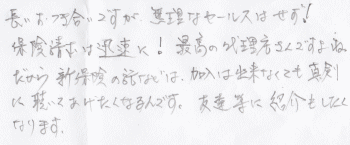 長いおつき合いですが、無理なセールスはせず!
保険請求は迅速に! 最高の代理店さんですよね
だから新保険の話などは、加入は出来なくても真剣
に聴いてあげたくなるんです。友達等に紹介もしたく
なります。